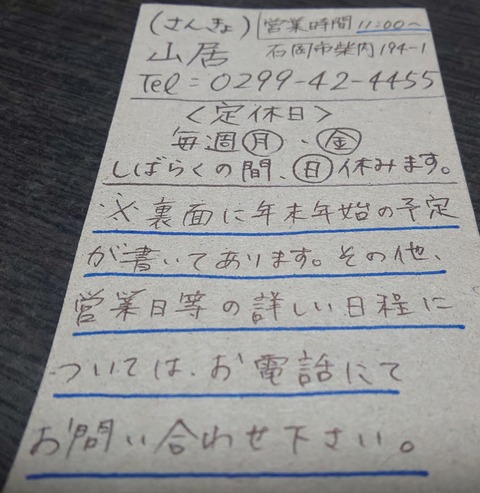 (さんきょ) 営業時間 11:00〜
山居 石岡市柴内194-1
Tel=0299-42-4455
<定休日>
毎週㊊・㊎
しばらくの間、㊐休みます。
※裏面に年末年始の予定
が書いてあります。その他、
営業日等の詳しい日程に
ついては、お電話にて
お問い合わせ下さい。